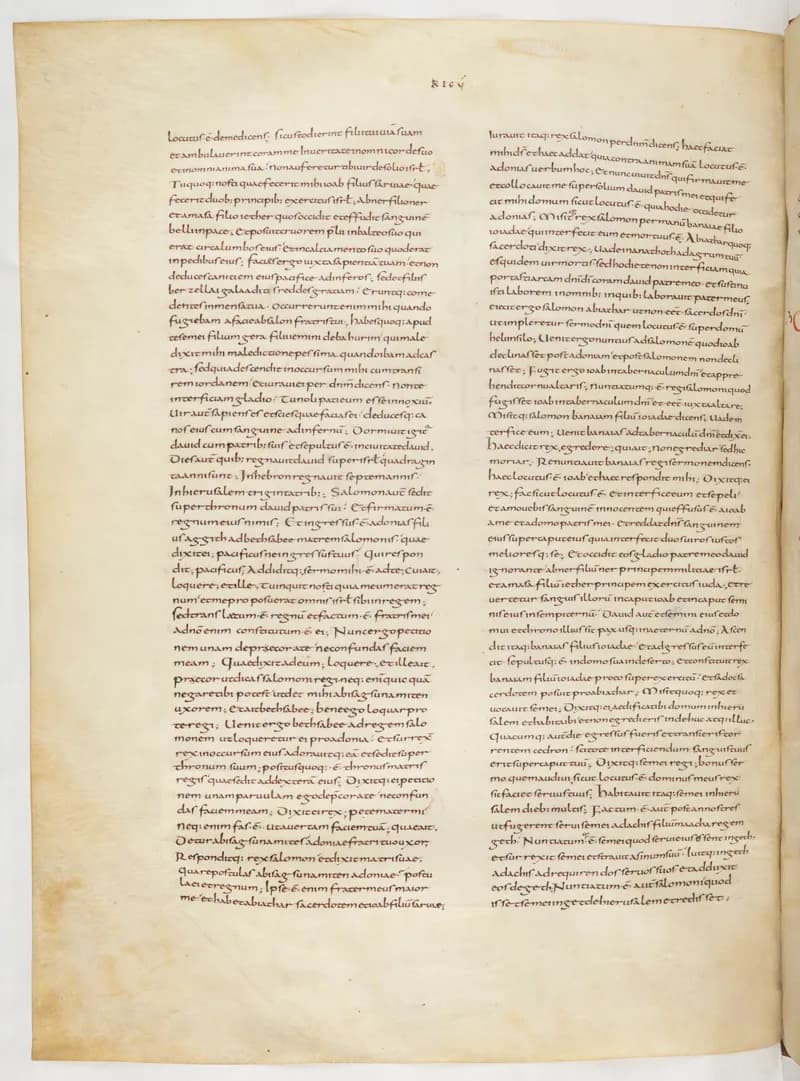 REGV
locutus ē demedicens; sicustodierint filii tui uiā suam
et ambulauerint coram me Inueritate inomni corde suo
et in omni anima sua; non auferetur abiuir desolio isrł;
Tu quoq: nosti quae fecerit mihi ioab filius saruiae quae
fecerit duob; principib; exercitus isrł; Abner filio ner
et amasa filio iether quos occidit et effudit sanguinē
belli inpace; Et posuit cruorem p̄lii inbalteo suo qui
erat circa lumbos eius et incalciamento suo quod erat
inpedibus eius; facies ergo iuxta sapientiā tuam et non
deduces canitiem eius pacifice adinferos; sed et filiis
berzellai galaaditis reddes gratiam; Erunt q: come
dentes inmensa tua; Occurrerunt enim mihi quando
fugiebam afacie absalon fratris tui; habes quoq: apud
te semei filium gera filii iemini de bahurim qui male
dixit mihi maledictione pessima quando ibam ad cas
tra; sed quia descendit inoccursum mihi cum transi
rem iordanem et iuraui ei per dnm dicens; non te
interficiam gladio; Tu noli pati eum esse innoxiū;
Uir aut̄ sapiens es et scies quae facias ei; deduces q; ca
nos eius cum sanguine ad infernū; Dormiuit igit̄
dauid cum patrib; suis et sepultus ē. inciuitate dauid.
Dies aut̄ quib; regnauit dauid super isrł quadragin
ta anni sunt; Inhebron regnauit septem annis
Inhierusalem triginta trib:; Salomon aut̄ sedit
super thronum dauid patris sui; Et firmatum ē
regnum eius nimis; Et ingressus ē adonias fili
us aggith ad bethsabee matrem salomonis; quae
dixit ei; pacificus ne ingressus tuus; Qui respon
dit; pacificus; Addidit q:; sermo mihi ē ad te; Cui ait;
loquere; et ille; Tu inquit nosti quia meum erat reg
num et me proposuerat omnis isrł sibi in regem;
sed translatum ē regnū et factum ē fratris mei
Adnō enim constitutum ē ei; Nunc ergo petitio
nem unam deprecor a te ne confundas faciem
meam; Quae dixit ad eum; loquere; et ille ait;
praecor ut dicas salomoni regi neq: enim quic quā
negare tibi potest ut det mihi abisag sunamiten
uxorem; Et ait bethsabee; bene ego loquar pro
te regi; Uenit ergo bethsabee ad regem salo
monem ut loqueretur ei pro adonia; et surrexit
rex in occursum eius adorauit q: eā et sedit super
thronum suum; positus quoq: ē thronus matris
regis quae sedit ad dexterā eius; Dixit q: ei; petitio
nem unam paruulam ego dep̄cor a te ne confun
das faciem meam; Dixit ei rex; pete mater mi
neq: enim fas ē ut auertam faciem tuā; quae ait;
Detur abisag sunamites adoniae fratri tuo uxor;
Respondit q: rex salomon et dixit matri suae;
Quare postulas abisag sunamiten adoniae; postu
la ei et regnum; Ipse ē enim frater meus maior
me et habet abiathar sacerdotem et ioab filiū saruiae;
Iurauit itaq: rex salomon per dnm̄ dicens; haec faciat
mihi ds̄ et haec addat quia contra animam suā locutus ē
adonias uerbum hoc; et nunc uiuit dn̄s qui firmauit me
et collocauit me super solium dauid patris mei et qui fe
cit mihi domum sicut locutus ē quia hodie occidetur
adonias; Misit q: rex salomon per manū banaiae filio
ioiadae qui interfecit eum et mortuus ē; Abiathar quoq:
sacerdoti dixit rex; Uade inanathoth ad agrum tuū
es quidem uir mortis sed hodie te non interficiam quia
portasti arcam dn̄i dī coram dauid patre meo et sustinu
isti laborem in omnib; inquib; laborauit pater meus;
eiecit ergo salomon abiathar ut non eēt sacerdos dn̄i
ut impleretur sermo dn̄i quem locutus ē super domū
heli insilo; Uenit ergo nuntius ad salomonē quod ioab
declinasset post adoniam et post salomonem non decli
nasset; Fugit ergo ioab in tabernaculum dn̄i et appre
hendit cornu altaris; Nuntiatumq: ē regi salomoni quod
fugisset ioab in tabernaculum dn̄i et eēt iuxta altare;
Misit q: salomon banaiam filiū ioiadae dicens; Uade in
terfice eum; Uenit banaias ad tabernaculū dn̄i et dix̄ ei;
haec dicit rex, egredere; qui ait; non egrediar sed hic
moriar; Renuntiauit banaias regi sermonem dicens;
haec locutus ē ioab et haec respondit mihi; Dixit q: ei
rex; fac sicut locutus ē et interfice eum et sepeli
et amouebis sanguinē innocentem qui effusus ē aioab
a me et a domo patris mei; et reddat dn̄s sanguinem
eius super caput eius quia interfecit duos uiros iustos
meliores q: se; et occidit eos gladio patre meo dauid
ignorante abner filiū ner principem militiae isrł
et amasa filiū iether principem exercitus iuda; et re
uertetur sanguis illorū in caput ioab et in caput semi
nis eius in sempiternū; Dauid aut̄ et semini eius et do
mui et throno illius sit pax usq: inaeternū adnō; Ascen
dit itaq: banaias filius ioiadae et adgressus eū interfe
cit sepultusq: ē indomo sua indeserto; et constituit rex
banaiam filiū ioiadae pro eo super exercitū; et sadoc sa
cerdotem posuit pro abiathar; Misit quoq: rex et
uocauit semei; Dixit q: ei; Aedifica tibi domum in hieru
salem et habita ibi et non egredieris inde huc atq: illuc.
Quacumq: aut̄ die egressus fueris et transieris tor
rentem cedron; scito te interficiendum sanguis tuus
erit super caput tuū; Dixit q: semei regi; bonus ser
mo quemadmodum sicut locutus ē dominus meus rex
sic faciet seruus tuus; habitauit itaq: semei in hieru
salem dieb; multis; Factum ē aut̄ post annos tres
ut fugerent serui semei ad achis filiū maacha regem
geth; Nuntiatum ē semei quod serui eius essent in geth;
et surrexit semei et strauit asinum suū; Iuit q: in geth
ad achis ad requirendos seruos suos et adduxit
eos de geth; Nuntiatum ē aut̄ salomoni quod
isset semei in geth de hierusalem et redisset;